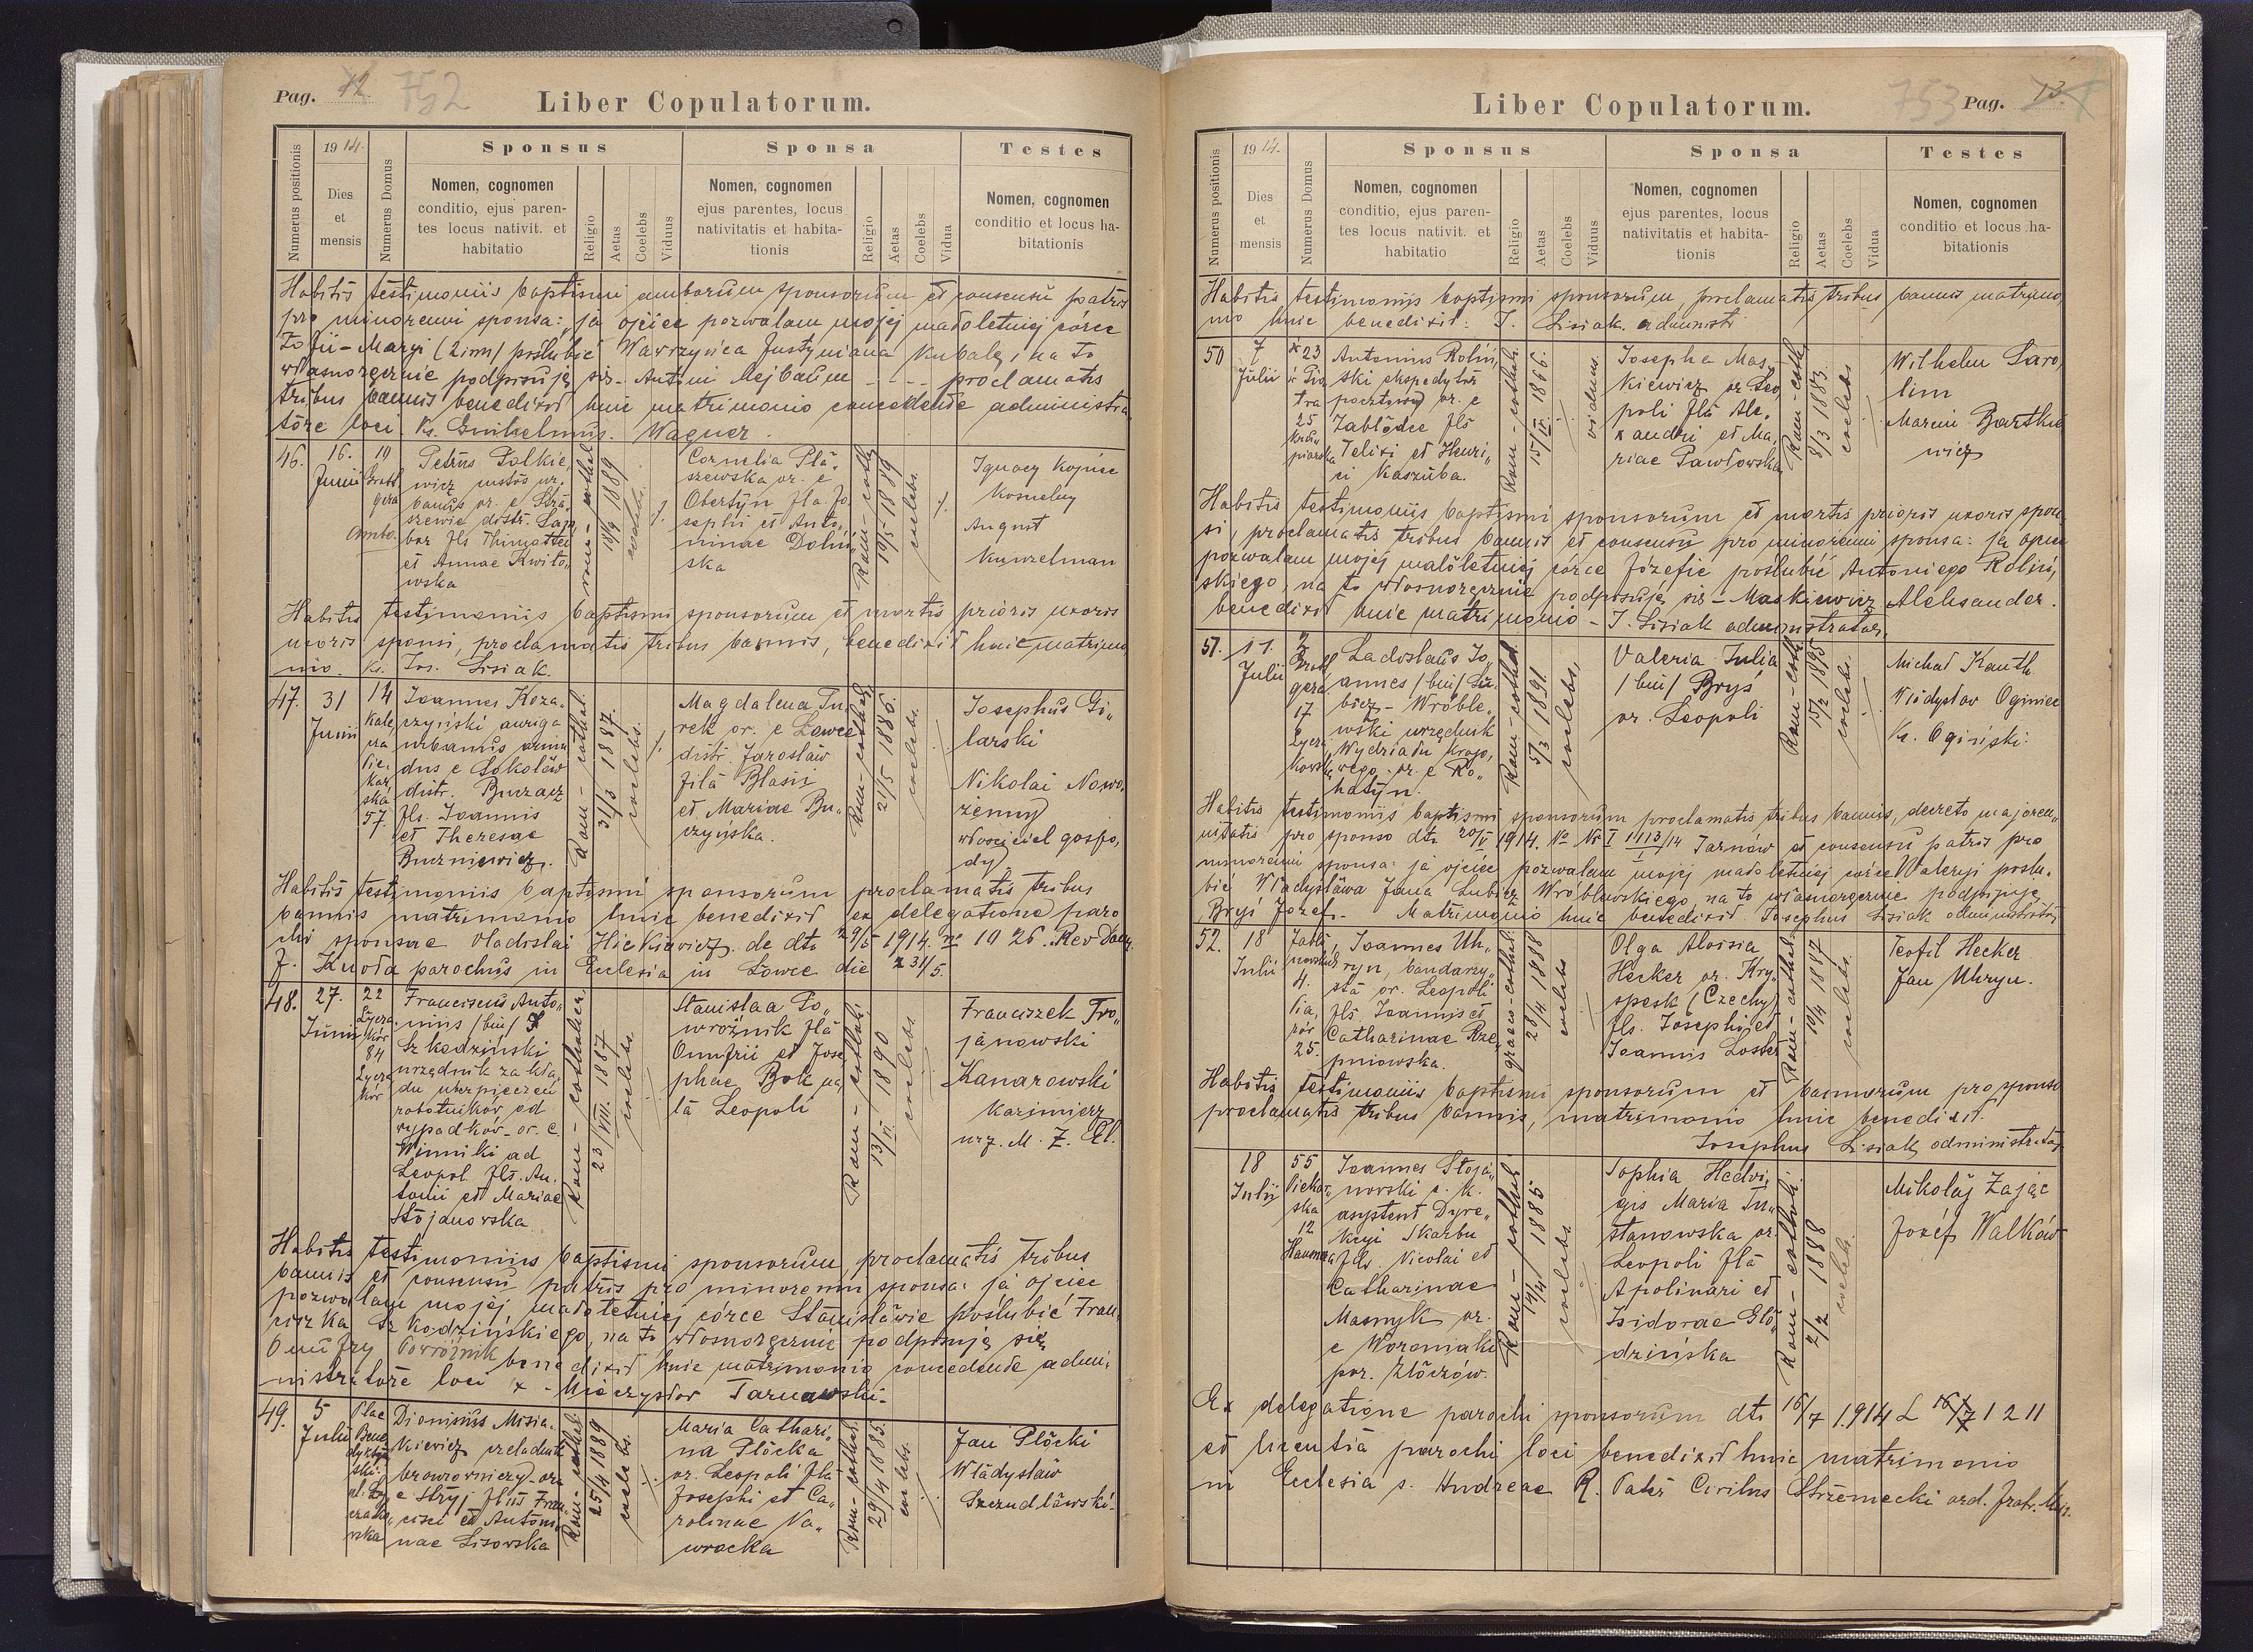 Pag. 72 752
Liber Copulatorum.
Numerus positionis
1914.
Dies
et
mensis
Numerus Domus
Sponsus
Nomen, cognomen
conditio, ejus paren-
tes locus nativit. et
habitatio
Religio
Aetas
Coelebs
Viduus
Sponsa
Nomen, cognomen
ejus parentes, locus
nativitatis et habita-
tionis
Religio
Aetas
Coelebs
Vidua
Testes
Nomen, cognomen
conditio et locus ha-
bitationis
Habitis testimoniis baptismi amborum sponsorum et consensu patris
pro minorenni sponsa: ja ojciec pozwalam mojej małoletniej córce
Zofii-Maryi (2 im) poślubić Wawrzyńca Justyniana Kubalę, na to
własnoręcznie podpisuję się - Antoni Mejbaum - - - proclamatis
tribus bannis benedixit huic matrimonio concedente administra„
tore loci. Ks. Guilhelmus. Wagner.
46.
16.
Junii
19
ambo.
Petrus Falkie„
wicz custos ur„
banus or. e Stra„
szewie distr.
fls Thimottei
et Annae Kwito„
wska
rom-cathol.
18/9 1889
coelebs
Cornelia Pla„
szewska or. e
Obertyn fla Jo„
sephi et Anto„
ninae Doliń„
ska
Rom-cath.
19/5 1889
coelebs.
Ignacy Kopiec
August
Kunzelman
Habitis testimoniis baptismi sponsorum et mortis prioris uxoris
uxoris sponsi, proclamatis tribus bannis, benedixit huic matrimo
nio. Ks. Jos. Lisiak.
47.
31
Junii
14
57.
Joannes Koza„
czyński auriga
urbanus oriun
dus e Sokołów
distr. Buczacz
fls. Joannis
et Theresae
Buczniewicz.
Rom-cathol.
31/3 1887.
coelebs.
Magdalena Tu„
rek or. e Łowce
distr. Jarosław
fila Blasii
et Mariae Bu„
czyńska.
Rom-cathol.
21/5 1886.
coelebs.
Josephus Gi„
larski
Nikolai Nawo„
żenny
włościciel gospo„
dy
Habitis testimoniis baptismi sponsorum proclamatis tribus
bannis matrimonio huic benedixit ex delegatione paro
chi sponsae Vladislai Hickiewicz de dto 29/5 1914. ne 1026. Rev
J. Kuoda parochus in Ecclesia in Łowce die 31/5.
48.
27.
Junii
22
Łycza„
ków
84
Łycza
ków
Franciscus Anto„
nius /bin/
Szkodziński
urzędnik zakła„
du ubezpieczeń
robotników od
wypadków - or. e.
Winniki ad
Leopol. fls. An„
tonii et Mariae
Stojanowska
Rom-catholic.
23/VIII. 1887
coelebs.
Stanislaa Po„
wroźnik fla
Onufrii et Jose
phae Bok na„
ta Leopoli
Rom-cathol.
13/II. 1890
coelebs.
Franciszek Tro„
janowski
Kanarowski
Kazimierz
urz. M. Z. El.
Habitis testimoniis baptismi sponsorum, proclamatis tribus
bannis et consensu patris pro minorenni sponsa: ja ojciec
pozwalam mojej małoletniej córce Stanisławie poślubić Fran„
ciszka Szkodzińskiego, na to własnoręcznie podpisuję się
Onufry Powroźnik benedixit huic matrimonio concedente admi„
nistratore loci x - Mieczysław Tarnawski.
49.
5
Julii
Plac
Bene
dyktyń
ski.
Dionisius Misia„
kiewicz czeladnik
browarniczy or.
e Stryj filius Fran„
cisci et Antoni„
nae Lisowska
Rom-cathol.
25/4 1889
coelebs.
Maria Cathari„
na Płocka
or. Leopoli fla
Josephi et Ca„
rolinae Na„
wrocka
Rom-cathol.
29/4 1885.
coelebs.
Jan Płocki
Władysław
Szczudławski.
Liber Copulatorum.
753 Pag. 73.
Numerus positionis
1914.
Dies
et
mensis
Numerus Domus
Sponsus
Nomen, cognomen
conditio, ejus paren-
tes locus nativit. et
habitatio
Religio
Aetas
Coelebs
Viduus
Sponsa
Nomen, cognomen
ejus parentes, locus
nativitatis et habita-
tionis
Religio
Aetas
Coelebs
Vidua
Testes
Nomen, cognomen
conditio et locus ha-
bitationis
Habitis testimoniis baptismi sponsorum, proclamatis tribus bannis matrimo„
nio huic benedixit: J. Lisiak. administ.
50
7
Julii
23
św Pio
tra
25
Antonius Roliń„
ski ekspedytor
pocztowy or. e
Zabłońce fls
Felixi et Henri„
ci Kaszuba.
Rom-cathol.
15/VI. 1866.
viduus.
Josepha Mas„
kiewicz or Leo„
poli fla Ale„
xandri et Ma„
riae Pawłowska
Rom-cath.
8/3 1883.
coelebs
Wilhelm Saro„
lim
Marcin Bartkie
wicz
Habitis testimoniis baptismi sponsorum et mortis prioris uxoris spon„
si, proclamatis tribus bannis et consensu pro minorenni sponsa: ja ojciec
pozwalam mojej małoletniej córce Józefie poślubić Antoniego Roliń„
skiego, na to własnoręcznie podpisuję się - Maskiewicz Aleksander.
benedixit huic matrimonio - J. Lisiak administrator.
51.
11.
Julii
17
Łycza
kowska
Ladislaus Jo„
annes /bin/ Lu„
bicz - Wróble„
wski urzędnik
Wydziału Krajo„
wego. or. e Ro„
hatyn.
Rom-cathol.
5/3 1891.
coelebs.
Valeria Julia
/bin/ Bryś
or. Leopoli
Rom-cath.
15/2 1895.
coelebs.
Michał Kauth.
Władysław Oginiec
Ks. Ogiński.
Habitis testimoniis baptismi sponsorum proclamatis tribus bannis, decreto majoren„
nitatis pro sponso dto 20/V 1914. No Nc I 1113/14 Tarnów et consensu patris pro
minorenni sponsa: ja ojciec pozwalam mojej małoletniej córce Waleryi poślu„
bić Władysława Jana Lubicz Wróblewskiego, na to własnoręcznie podpisuję
Bryś Józef. Matrimonio huic benedixit Josephus Lisiak administrator
52.
18
Julii
Jabło
nowskich
4.
25.
Joannes Uh„
ryn, bandarzy„
sta or. Leopoli
fls Joannis et
Catharinae Rze„
pniowska.
graeco-cathol.
28/4 1888
coelebs
Olga Aloisia
Hecker or. Kry„
spesk (Czechy)
fls. Josephi et
Joannis Loster
Rom-cathol.
19/4 1887
coelebs.
Teofil Hecker
Jan Uhryn.
Habitis testimoniis baptismi sponsorum et bannorum pro sponso
proclamatis tribus bannis, matrimonio huic benedixit.
Josephus Lisiak administrator
18
Julii
55
Piekar„
ska
12
Hausnera
Joannes Stoja„
nowski c. k.
asystent Dyre„
kcyi Skarbu
fls. Nicolai et
Catharinae
Masnyk or.
e Woroniaki
por. Złoczów.
Rom-cathol.
19/4 1885
coelebs.
Sophia Hedvi„
gis Maria Tu„
stanowska or.
Leopoli fla
Apolinari et
Isidorae Gło„
dzińska
Rom-cathol.
2/2 1888
coelebs.
Mikołaj Zając
Józef Walków
Ex delegatione parochi sponsorum dto 16/7 1914 L 1211
et licentia parochi loci benedixit huic matrimonio
in Ecclesia s. Andreae R. Pater Cirilus Strzemecki ord. fratr. Min.